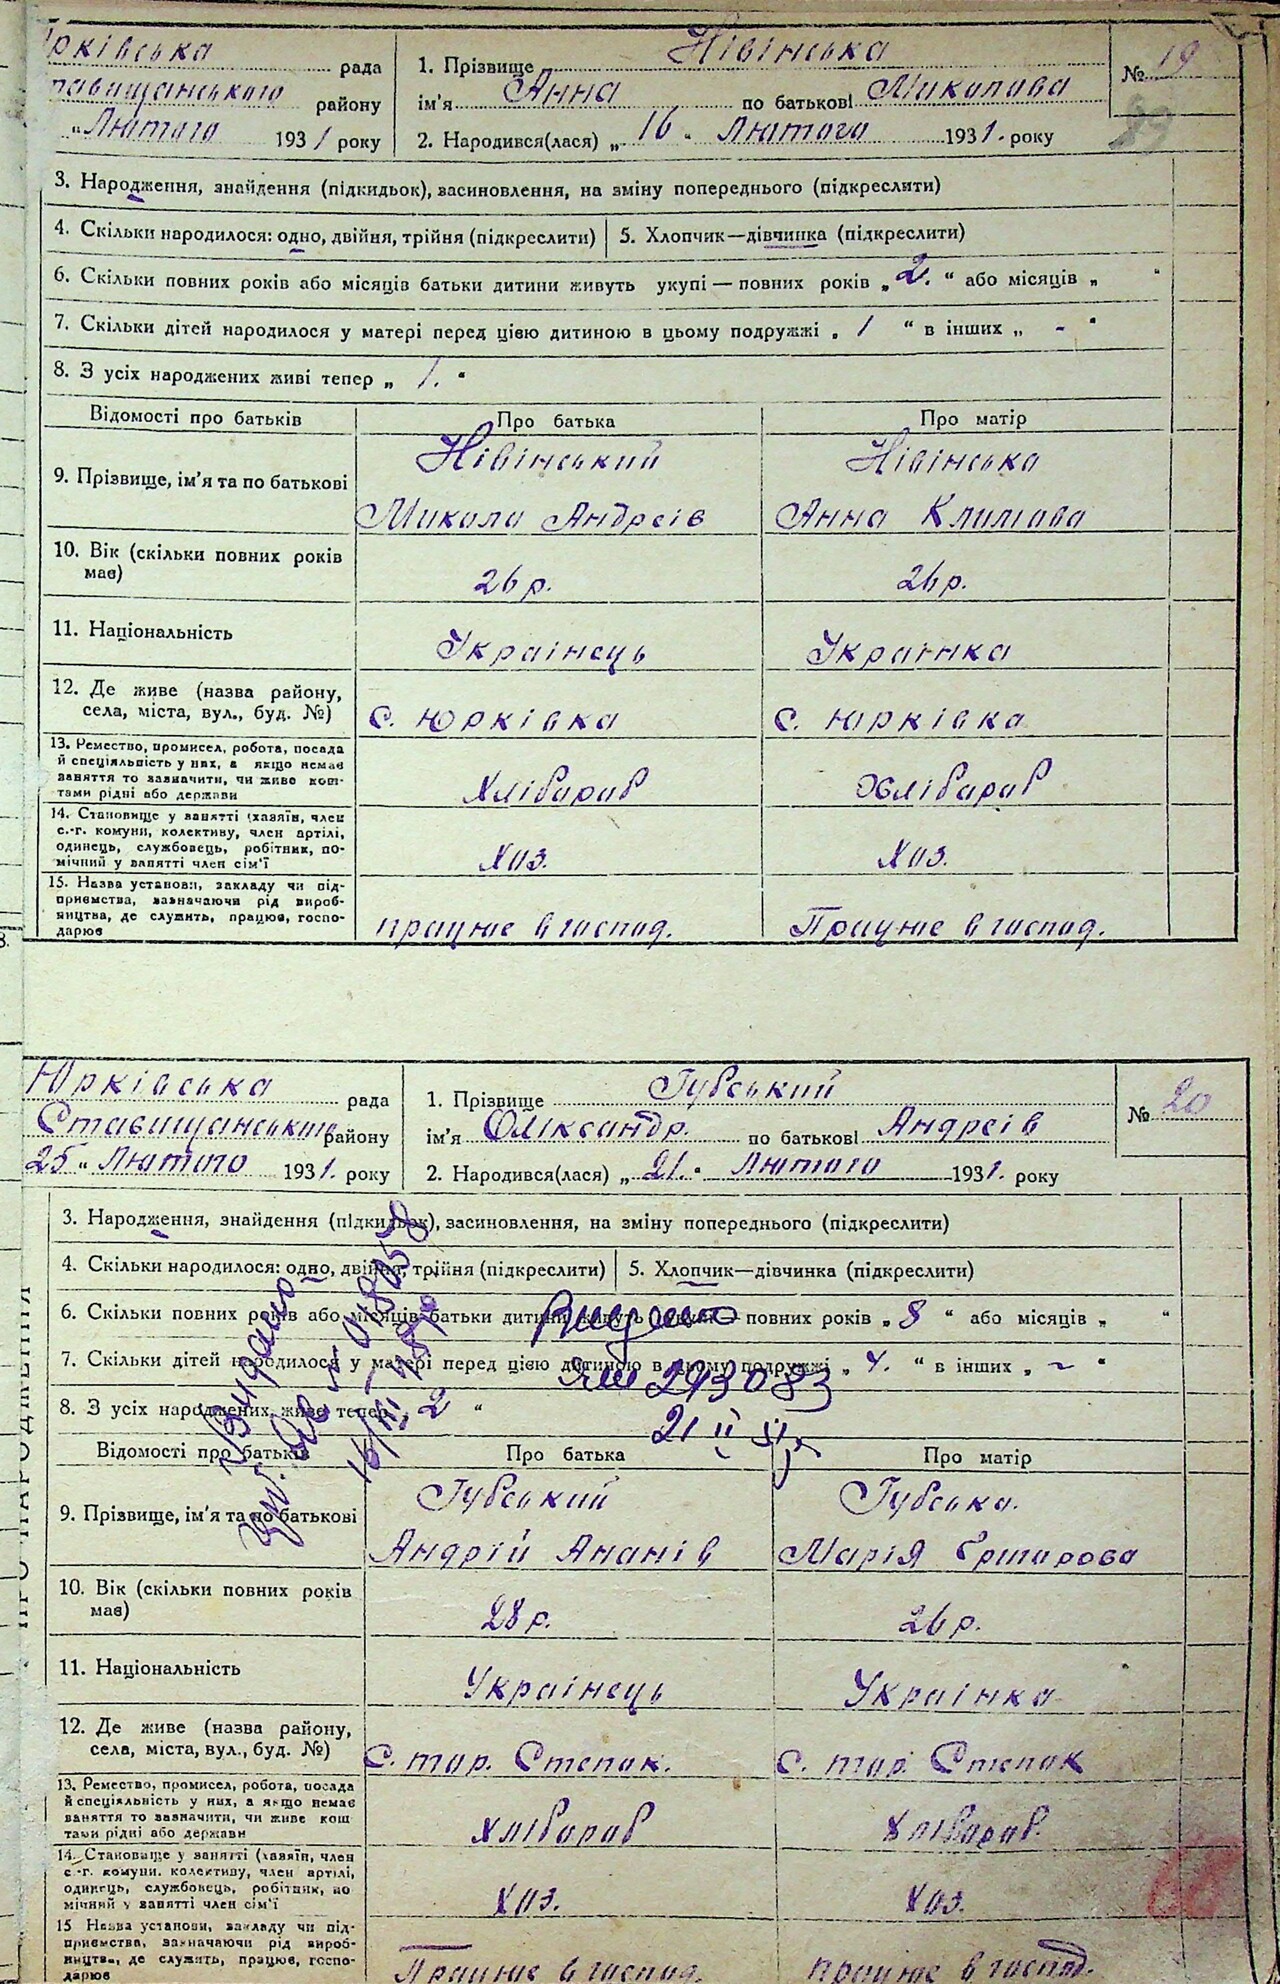 рківська рада
тавищанського району
"Лютого 1931 року
1. Прізвище Нівінська
ім'я Анна по батькові Миколова
2. Народився(лася) „16" Лютого 1931. року
№ 19
89
3. Народження, знайдення (підкидьок), засиновлення, на зміну попереднього (підкреслити)
4. Скільки народилося: одно, двійня, трійня (підкреслити) 5. Хлопчик—дівчинка (підкреслити)
6. Скільки повних років або місяців батьки дитини живуть укупі — повних років „2." або місяців „ "
7. Скільки дітей народилося у матері перед цією дитиною в цьому подружжі „1" в інших „-"
8. З усіх народжених живі тепер „1."
Відомості про батьків Про батька Про матір
9. Прізвище, ім'я та по батькові Нівінський Микола Андреів Нівінська Анна Климова
10. Вік (скільки повних років має) 26 р. 26 р.
11. Національність Украінець Украінка
12. Де живе (назва району, села, міста, вул., буд. №) с. Юрківка с. Юрківка
13. Ремество, промисел, робота, посада й спеціяльність у них, а якщо немає заняття то зазначити, чи живе коштами рідні або держави Хлібороб Хлібороб
14. Становище у занятті (хазяїн, член с.-г. комуни, колективу, член артілі, одинець, службовець, робітник, помічний у занятті член сім'ї Хоз. Хоз.
15. Назва установи, закладу чи підприємства, зазначаючи рід виробництва, де служить, працює, господарює працює в господ. Працює в господ.
Юрківська рада
Ставищанського району
25 " Лютого 1931. року
1. Прізвище Губський
ім'я Оліксандр. по батькові Андреів
2. Народився(лася) „21." Лютого 1931. року
№ 20
3. Народження, знайдення (підкидьок), засиновлення, на зміну попереднього (підкреслити)
4. Скільки народилося: одно, двійня, трійня (підкреслити) 5. Хлопчик—дівчинка (підкреслити)
6. Скільки повних років або місяців батьки дитини живуть укупі — повних років „8" або місяців „ "
7. Скільки дітей народилося у матері перед цією дитиною в цьому подружжі „4." в інших „~"
8. З усіх народжених живі тепер „2"
Видано
293083
21 II
Видано
Відомості про батьків Про батька Про матір
9. Прізвище, ім'я та по батькові Губський Андрій Ананів Губська. Марія Григорова
10. Вік (скільки повних років має) 28 р. 26 р.
11. Національність Украінець Украінка
12. Де живе (назва району, села, міста, вул., буд. №) с. тор. Степок. с. тор. Степок
13. Ремество, промисел, робота, посада й спеціяльність у них, а якщо немає заняття то зазначити, чи живе коштами рідні або держави Хлібороб Хлібороб.
14. Становище у занятті (хазяїн, член с.-г. комуни, колективу, член артілі, одинець, службовець, робітник, помічний у занятті член сім'ї Хоз. Хоз.
15 Назва установи, закладу чи підприємства, зазначаючи рід виробництва, де служить, працює, господарює Працює в господ. працює в господ.